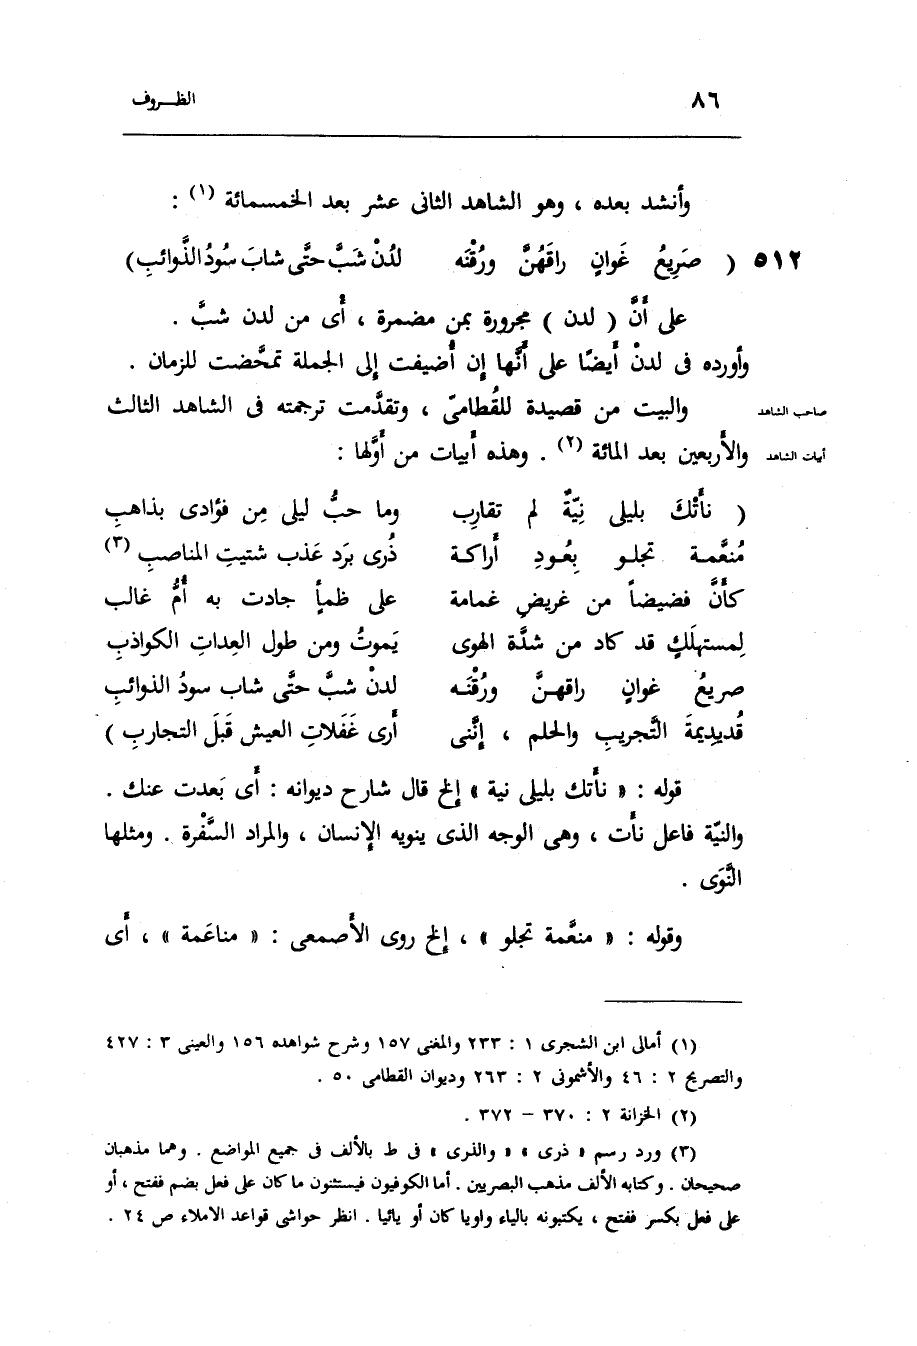 ٨٦ الظـــروف
وأنشد بعده ، وهو الشاهد الثانى عشر بعد الخمسمائة (١) :
٥١٢ ( صَرِيعُ غَوانٍ راقَهُنَّ ورُقْنَه لدُنْ شَبَّ حتَّى شابَ سُودُ الذَّوائبِ )
على أَنَّ ( لدن ) مجرورة بمن مضمرة ، أى من لدن شبَّ .
وأورده فى لدنْ أيضًا على أَنَّها إن أُضيفت إلى الجملة تمحَّضت للزمان .
صاحب الشاهد والبيت من قصيدة للقُطامىّ ، وتقدَّمت ترجمته فى الشاهد الثالث
أبيات الشاهد والأربعين بعد المائة (٢) . وهذه أبيات من أوَّلها :
( نأتْكَ بليلى نِيّةٌ لم تقارِب وما حبُّ ليلى مِن فؤادى بذاهبِ
مُنعَّمـة تجلـو بِعُـودِ أراكـة ذُرى برَد عَذب شتيتِ المناصبِ (٣)
كأنَّ فضيضاً من غريضِ غمامة على ظمأٍ جادت به أمُّ غالب
لِمستهلَكٍ قد كاد من شدَّة الهوى يَموتُ ومن طول العِداتِ الكواذبِ
صريعُ غوانٍ راقهنَّ ورُقْنَـه لدنْ شبَّ حتَّى شاب سودُ الذوائبِ
قُديدِيمةَ التَّجريبِ والحلم ، إنَّنى أرى غَفَلاتِ العيش قَبلَ التجاربِ )
قوله : « نأتك بليلى نية » إلخ قال شارح ديوانه : أى بَعدت عنك .
والنيّة فاعل نأت ، وهى الوجه الذى ينويه الإنسان ، والمراد السَّفْرة . ومثلها
النَّوَى .
وقوله : « منعَّمة تجلو » ، إلخ روى الأصمعى : « مناعَمة » ، أى
(١) أمالى ابن الشجرى ١ : ٢٣٣ والمغنى ١٥٧ وشرح شواهده ١٥٦ والعينى ٣ : ٤٢٧
والتصريح ٢ : ٤٦ والأشمونى ٢ : ٢٦٣ وديوان القطامى ٥٠ .
(٢) الخزانة ٢ : ٣٧٠ – ٣٧٢ .
(٣) ورد رسم « ذرى » « والذرى » فى ط بالألف فى جميع المواضع . وهما مذهبان
صحيحان . وكتابه الألف مذهب البصريين . أما الكوفيون فيستثنون ما كان على فعل بضم ففتح ، أو
على فعل بكسر ففتح ، يكتبونه بالياء واويا كان أو يائيا . انظر حواشى قواعد الاملاء ص ٢٤ .